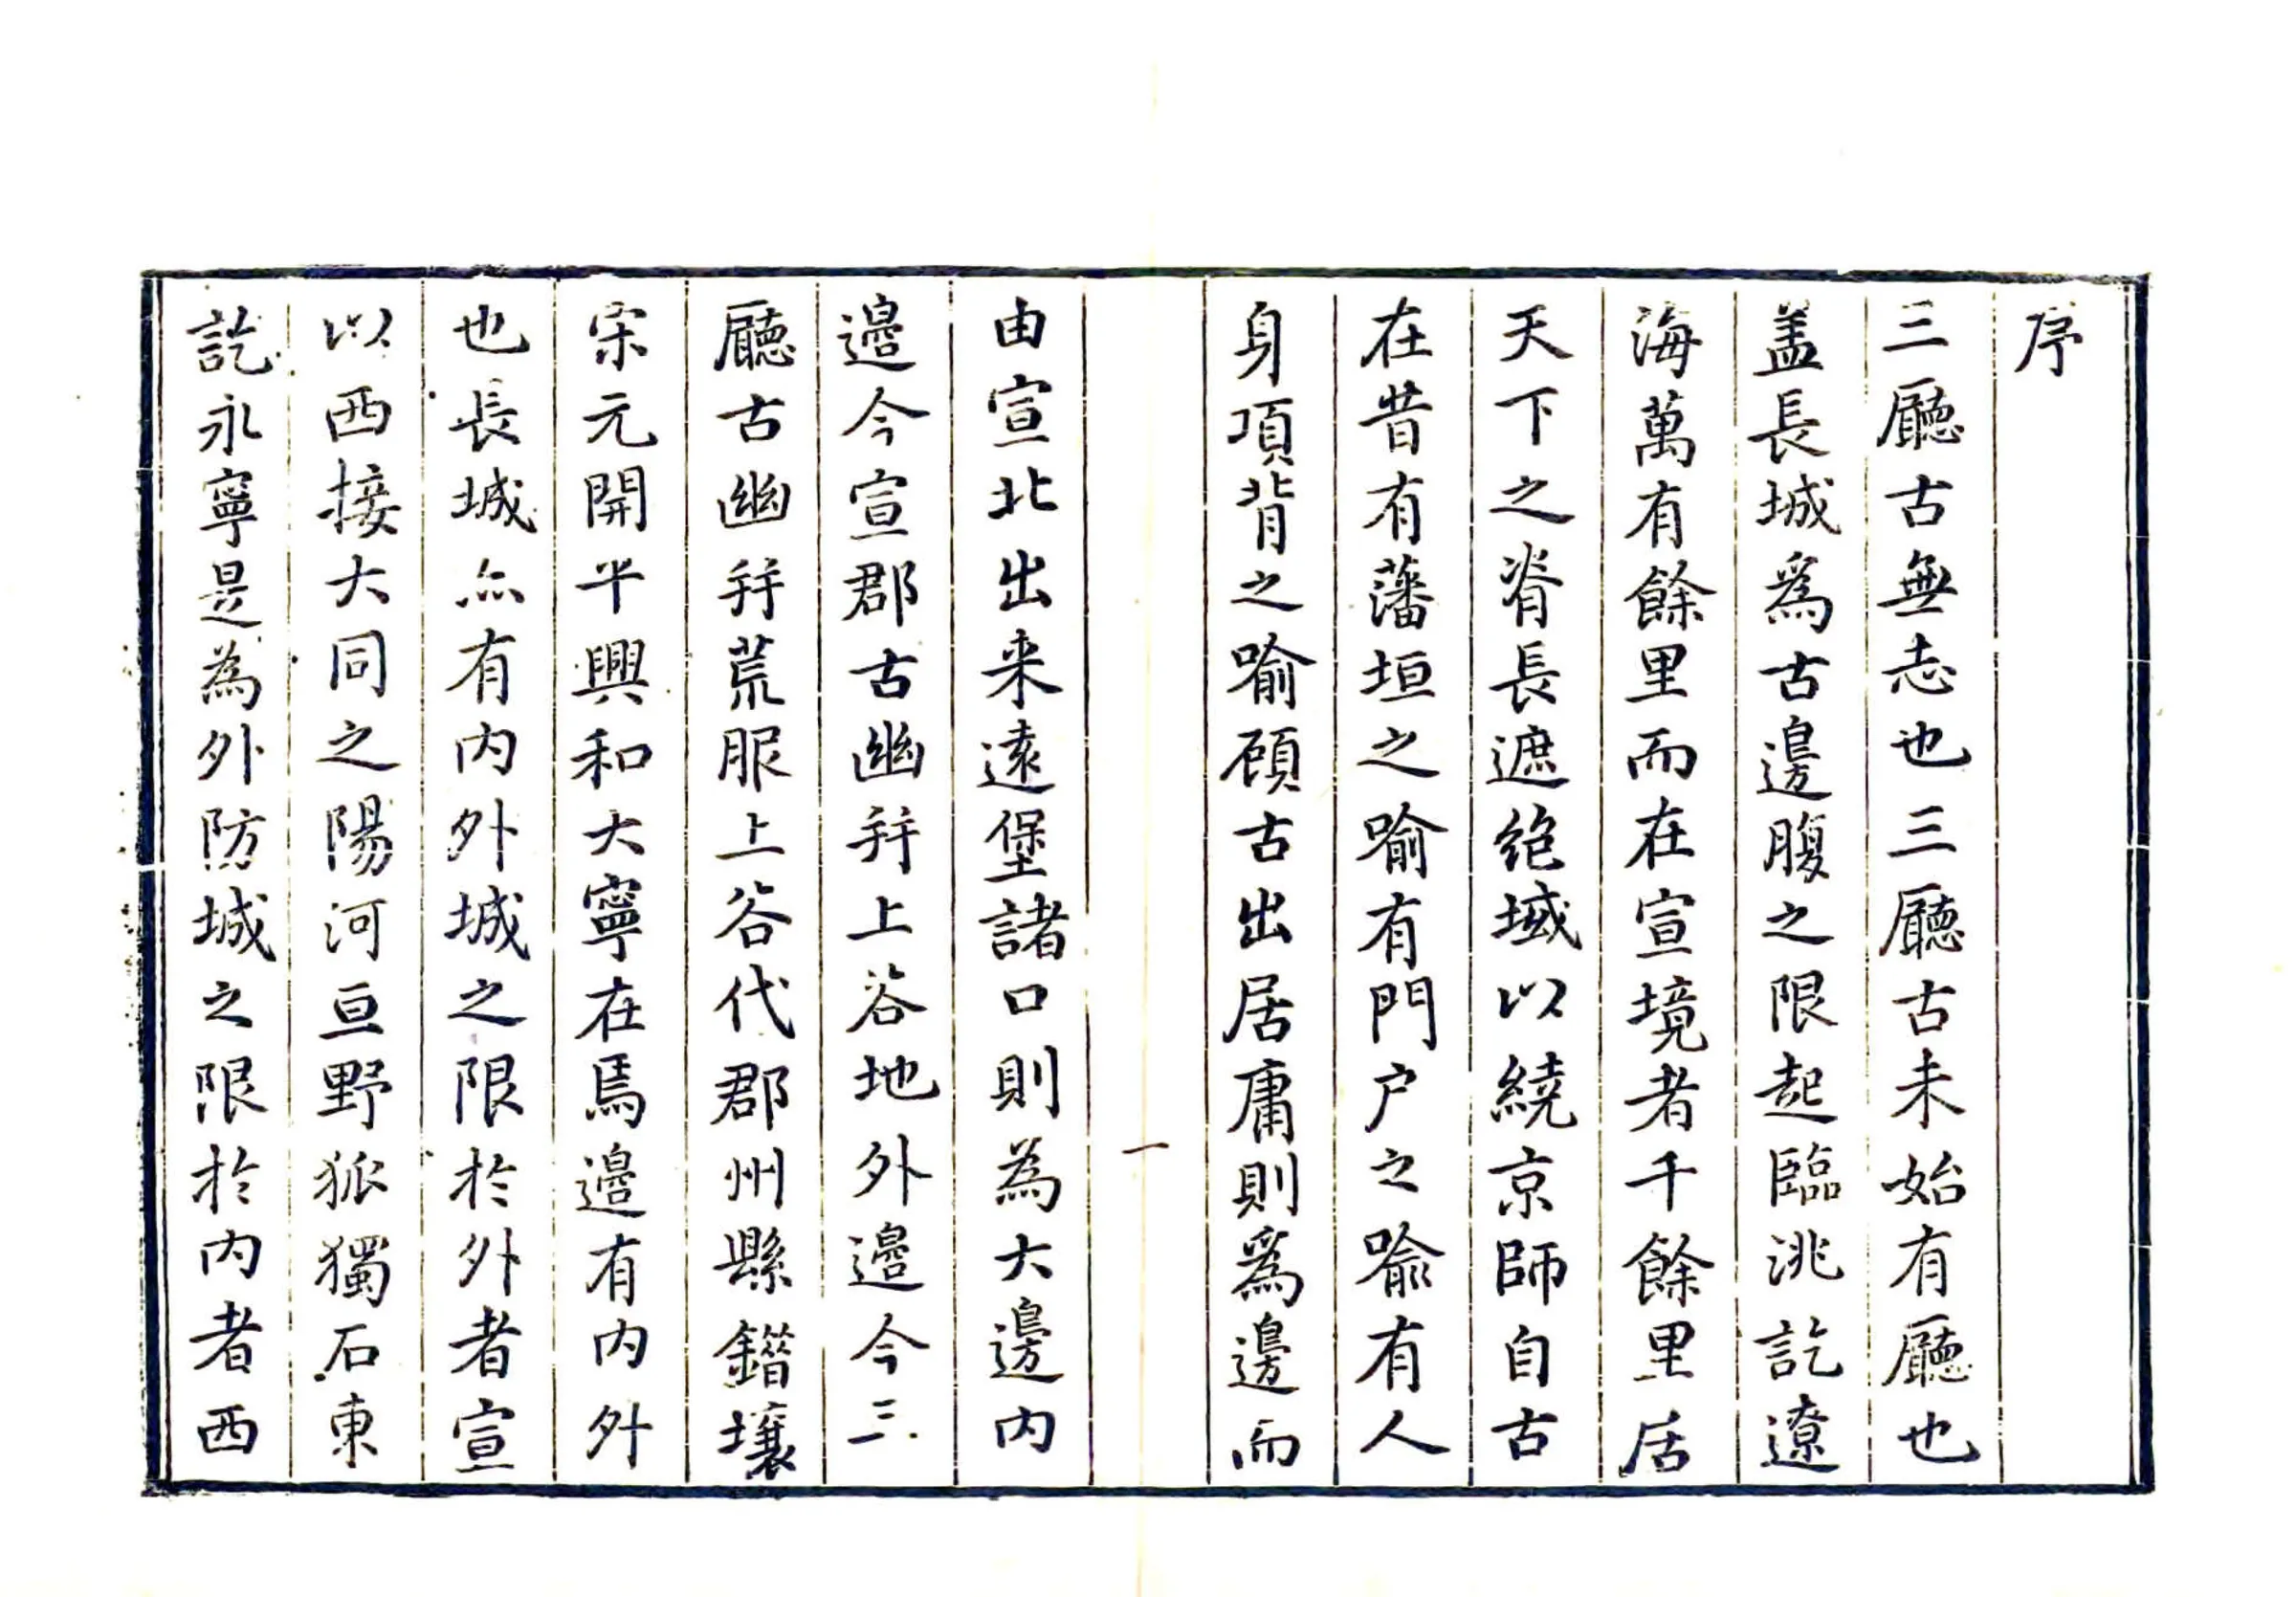 序
三廳古無志也三廳古未始有廳也
盖長城爲古邊腹之限起臨洮訖遼
海萬有餘里而在宣境者千餘里居
天下之脊長遮绝域以繞京師自古
在昔有藩垣之喻有門户之喻有人
身項背之喻顧古出居庸則爲邊而
一
由宣北出来遠堡諸口則為大邊内
邉今宣郡古幽并上谷地外邉今三
廳古幽并荒服上谷代郡州縣錯壤
宋元開平興和大寧在焉邉有内外
也長城亦有内外城之限於外者宣
以西接大同之陽河亘野狐獨石東
訖永寧是為外防城之限於内者西